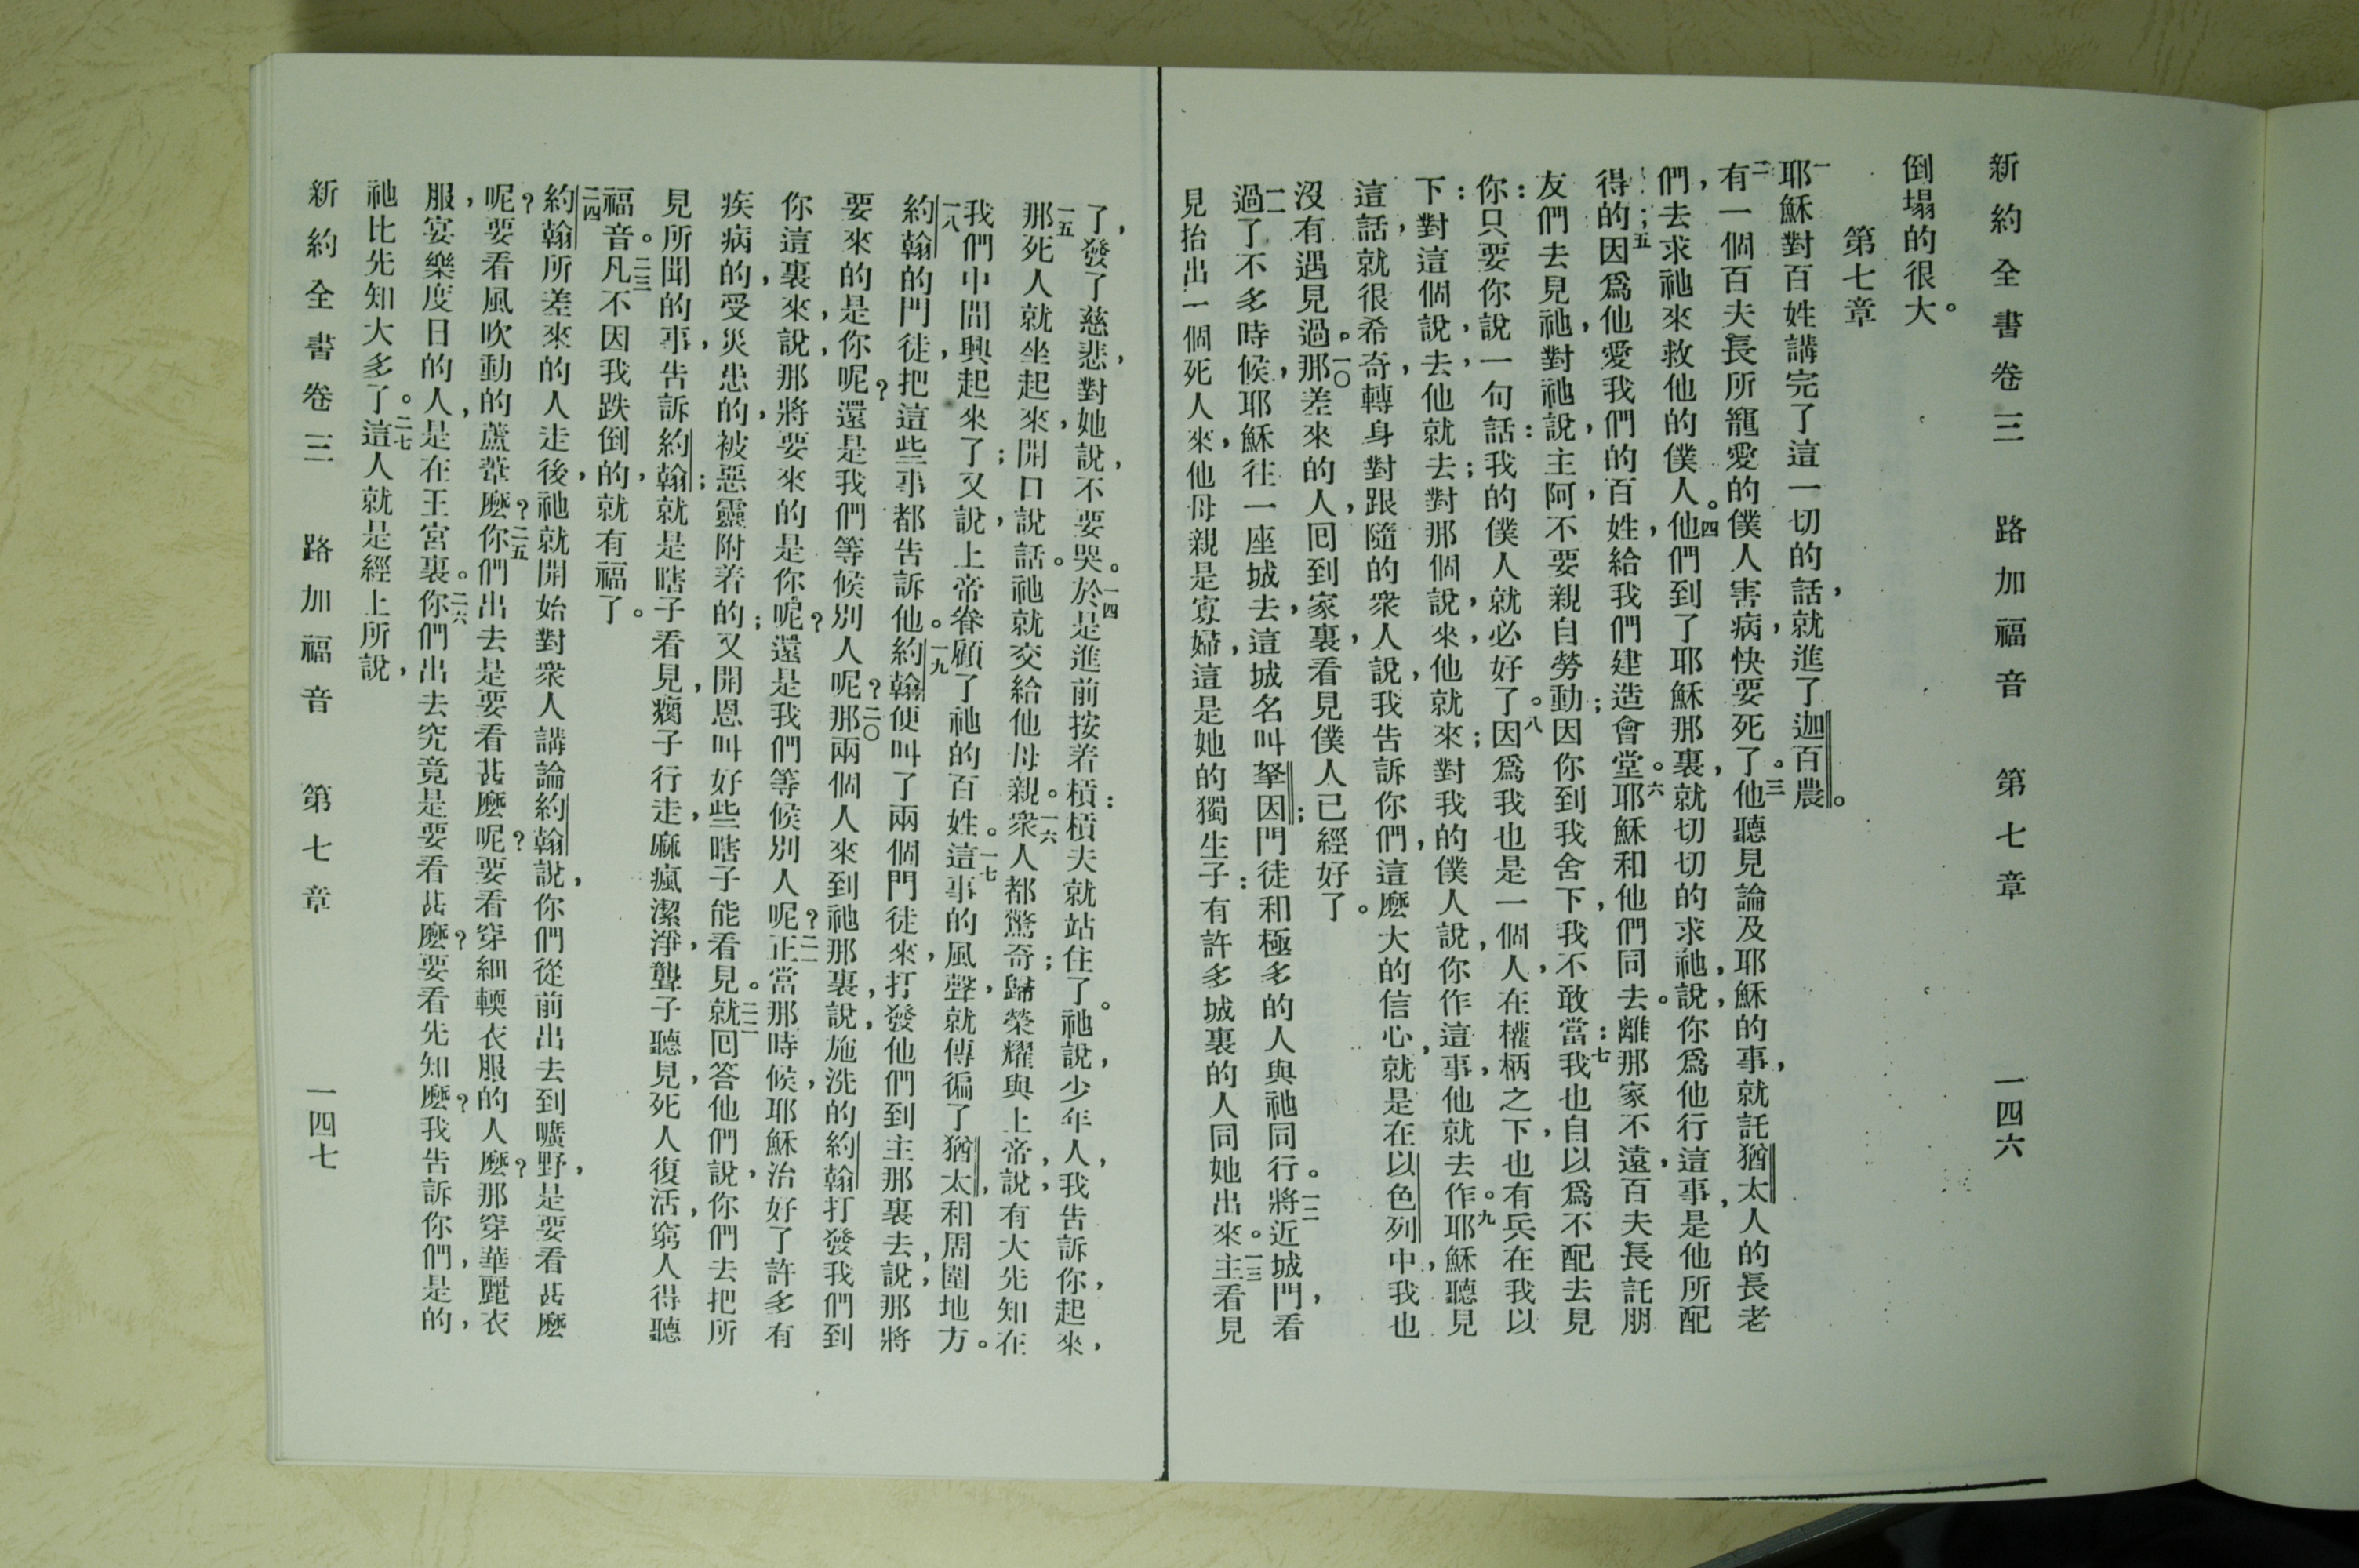 新約全書卷三 路加福音 第七章 一四六
倒塌的很大。
第七章
一耶穌對百姓講完了這一切的話，就進了迦百農。
二有一個百夫長所寵愛的僕人害病，快要死了。三他聽見論及耶穌的事，就託猶太人的長老
們，去求祂來救他的僕人。四他們到了耶穌那裏，就切切的求祂，說，你爲他行這事，是他所配
得的；五因爲他愛我們的百姓，給我們建造會堂。六耶穌和他們同去。離那家不遠，百夫長託朋
友們去見祂，對祂說，主阿，不要親自勞動；因你到我舍下，我不敢當：七我也自以爲不配去見
你：只要你說一句話：我的僕人就必好了。八因爲我也是一個人，在權柄之下，也有兵在我以
下：對這個說，去，他就去；對那個說，來，他就來；對我的僕人說，你作這事，他就去作。九耶穌聽見
這話，就很希奇，轉身對跟隨的衆人說，我告訴你們，這麽大的信心，就是在以色列中，我也
沒有遇見過。一〇那差來的人，囘到家裏，看見僕人已經好了。
一一過了不多時候，耶穌往一座城去，這城名叫拏因；門徒和極多的人與祂同行。一二將近城門，看
見抬出一個死人來，他母親是寡婦，這是她的獨生子：有許多城裏的人同她出來。一三主看見
了，發了慈悲，對她說，不要哭。一四於是進前按着槓：槓夫就站住了。祂說，少年人，我告訴你，起來，
一五那死人就坐起來，開口說話。祂就交給他母親。一六衆人都驚奇；歸榮耀與上帝，說，有大先知在
我們中間興起來了；又說，上帝眷顧了祂的百姓。一七這事的風聲，就傳徧了猶太，和周圍地方。
一八約翰的門徒，把這些事都告訴他。一九約翰便叫了兩個門徒來，打發他們到主那裏去，說，那將
要來的是你呢？還是我們等候別人呢？二〇那兩個人來到祂那裏，說，施洗的約翰打發我們到
你這裏來，說，那將要來的是你呢？還是我們等候別人呢？二一正當那時候，耶穌治好了許多有
疾病的，受災患的，被惡靈附着的；又開恩叫好些瞎子能看見。二二就囘答他們說，你們去把所
見所聞的事，告訴約翰；就是瞎子看見，瘸子行走，麻瘋潔淨，聾子聽見，死人復活，窮人得聽
福音。二三凡不因我跌倒的，就有福了。
二四約翰所差來的人走後，祂就開始對衆人講論約翰說，你們從前出去到曠野，是要看甚麽
呢？要看風吹動的蘆葦麽？二五你們出去是要看甚麽呢？要看穿細輭衣服的人麽？那穿華麗衣
服，宴樂度日的人，是在王宮裏。二六你們出去究竟是要看甚麽？要看先知麽？我告訴你們，是的，
祂比先知大多了。二七這人就是經上所說，
新約全書卷三 路加福音 第七章 一四七